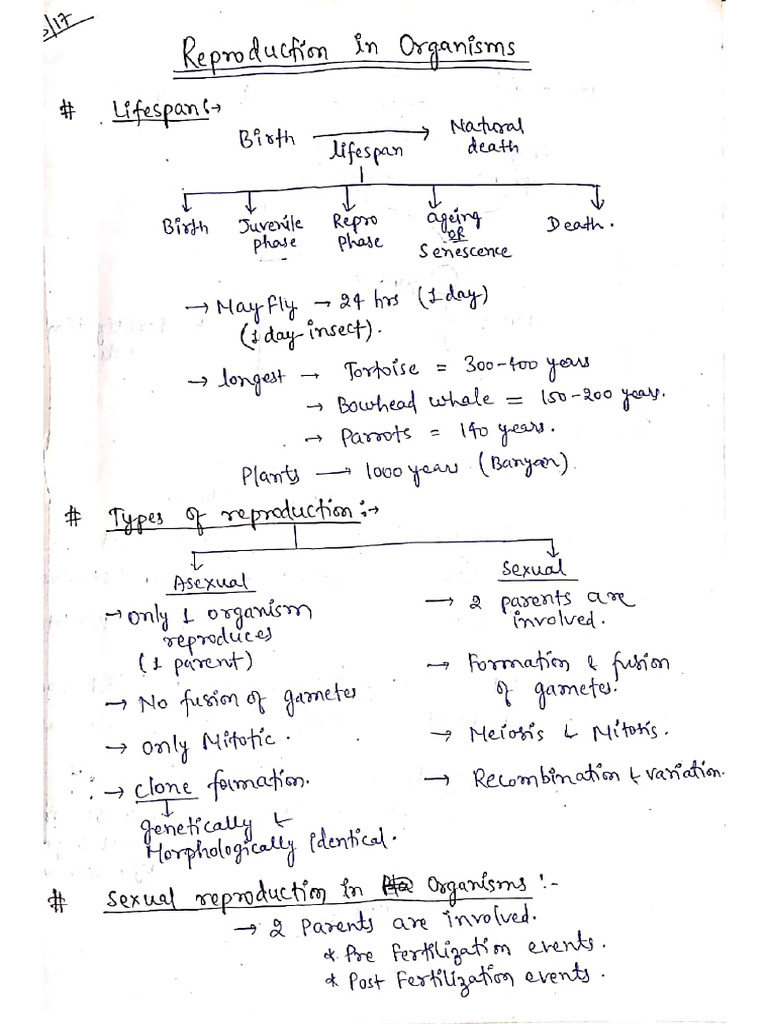 /17
Reproduction in Organisms
# Lifespan :→
Birth → Natural death
lifespan
Birth Juvenile phase Repro Phase ageing OR Senescence Death.
→ May Fly → 24 hrs (1 day)
(1 day-insect).
→ longest → Tortoise = 300-400 years
→ Bowhead whale = 150-200 years.
→ Parrots = 140 years.
Plants → 1000 years (Banyan)
# Types of reproduction :→
Asexual
→ only 1 organism
reproduces
(1 parent)
→ No fusion of gametes
→ only Mitotic.
→ clone formation.
genetically &
Morphologically Identical.
Sexual
→ 2 parents are
involved.
→ Formation & fusion
of gametes.
→ Meiosis & Mitosis.
→ Recombination & variation.
# Sexual reproduction in Organisms :-
→ 2 Parents are involved.
* Pre Fertilization events.
* Post Fertilization events.